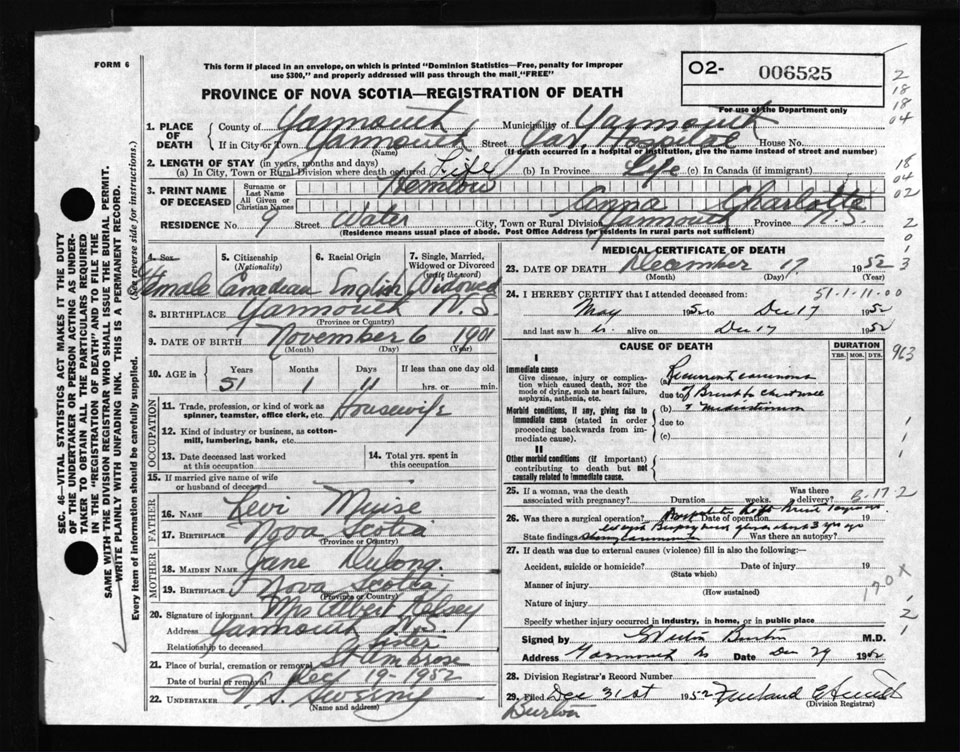 FORM 6
This form if placed in an envelope, on which is printed "Dominion Statistics—Free, penalty for improper
use $300," and properly addressed will pass through the mail "FREE"
O2- 006525
For use of the Department only
PROVINCE OF NOVA SCOTIA—REGISTRATION OF DEATH
SEC. 46—VITAL STATISTICS ACT MAKES IT THE DUTY
OF THE UNDERTAKER OR PERSON ACTING AS UNDER-
TAKER TO OBTAIN ALL THE PARTICULARS REQUIRED
IN THE "REGISTRATION OF DEATH" AND TO FILE THE
SAME WITH THE DIVISION REGISTRAR WHO SHALL ISSUE THE BURIAL PERMIT.
WRITE PLAINLY WITH UNFADING INK. THIS IS A PERMANENT RECORD.
Every item of information should be carefully supplied. (See reverse side for instructions.)
1. PLACE OF DEATH County of Yarmouth Municipality of Yarmouth
If in City or Town Yarmouth Street Yar. Hospital House No.
(Name) (If death occurred in a hospital or institution, give the name instead of street and number)
2. LENGTH OF STAY (in years, months and days)
(a) In City, Town or Rural Division where death occurred Life (b) In Province Life (c) In Canada (if immigrant)
3. PRINT NAME OF DECEASED Surname or Last Name
All Given or Christian Names Anna Charlotte
RESIDENCE No. 9 Street Water City, Town or Rural Division Yarmouth Province N.S.
(Residence means usual place of abode. Post Office Address for residents in rural parts not sufficient)
4. Sex 5. Citizenship (Nationality) 6. Racial Origin 7. Single, Married, Widowed or Divorced (write the word)
Female Canadian English Widowed
8. BIRTHPLACE Yarmouth N.S.
(Province or Country)
9. DATE OF BIRTH November 6 1901
(Month) (Day) (Year)
10. AGE in Years Months Days If less than one day old
51 1 11 hrs. or min.
OCCUPATION
11. Trade, profession, or kind of work as spinner, teamster, office clerk, etc. Housewife
12. Kind of industry or business, as cotton-mill, lumbering, bank, etc.
13. Date deceased last worked at this occupation
14. Total yrs. spent in this occupation
15. If married give name of wife or husband of deceased
FATHER
16. NAME Levi Muise
17. BIRTHPLACE Nova Scotia
(Province or Country)
MOTHER
18. MAIDEN NAME Jane Dulong
19. BIRTHPLACE Nova Scotia
(Province or Country)
20. Signature of informant Mrs Albert Kelsey
Address Yarmouth N.S.
Relationship to deceased Sister
21. Place of burial, cremation or removal St Ambrose
Date of burial or removal Dec 19-1952
22. UNDERTAKER V. S. Sweeny
(Name and address)
MEDICAL CERTIFICATE OF DEATH
23. DATE OF DEATH December 17 1952
(Month) (Day) (Year)
24. I HEREBY CERTIFY that I attended deceased from: 51-1-11-00
May 1952 to Dec 17 1952
and last saw h alive on Dec 17 1952
CAUSE OF DEATH DURATION
YRS. MOS. DYS.
I
Immediate cause
Give disease, injury or complication which caused death, not the mode of dying, such as heart failure, asphyxia, asthenia, etc.
(a) Recurrent carcinoma
due to of Breast to chest wall
Morbid conditions, if any, giving rise to immediate cause (stated in order proceeding backwards from immediate cause).
(b) + Mediastinum
due to
(c)
II
Other morbid conditions (if important) contributing to death but not causally related to immediate cause.
25. If a woman, was the death associated with pregnancy? Duration weeks. Was there delivery? B-17-2
26. Was there a surgical operation? Date of operation 19
State findings Was there an autopsy?
27. If death was due to external causes (violence) fill in also the following:—
Accident, suicide or homicide? Date of injury 19
(State which)
Manner of injury
(How sustained)
Nature of injury
170X
Specify whether injury occurred in industry, in home, or in public place
Signed by Burton M.D.
Address Yarmouth Date Dec 29 1952
28. Division Registrar's Record Number
29. Filed Dec 31st 1952
(Division Registrar)
Burton
2
18
18
04
18
04
02
2
0
3
963
1
1
1
2
1